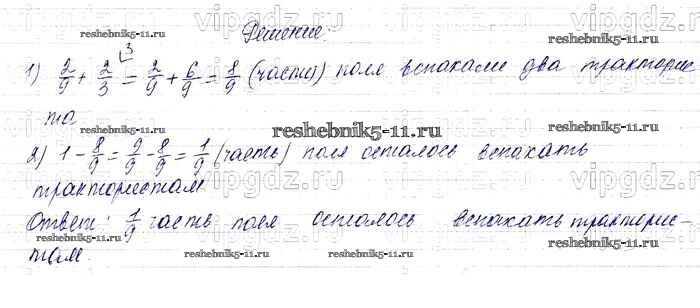 Решение:
1) 2/9 + 2/3 = 2/9 + 6/9 = 8/9 (части) поля вспахали два тракторис
3
та.
2) 1 - 8/9 = 9/9 - 8/9 = 1/9 (часть) поля осталось вспахать
трактористам
Ответ: 1/9 часть поля осталось вспахать тракторис-
там.
reshebnik5-11.ru
reshebnik5-11.ru
reshebnik5-11.ru
reshebnik5-11.ru
reshebnik5-11.ru
reshebnik5-11.ru
reshebnik5-11.ru
vipgdz.ru
vipgdz.ru
vipgdz.ru
vipgdz.ru